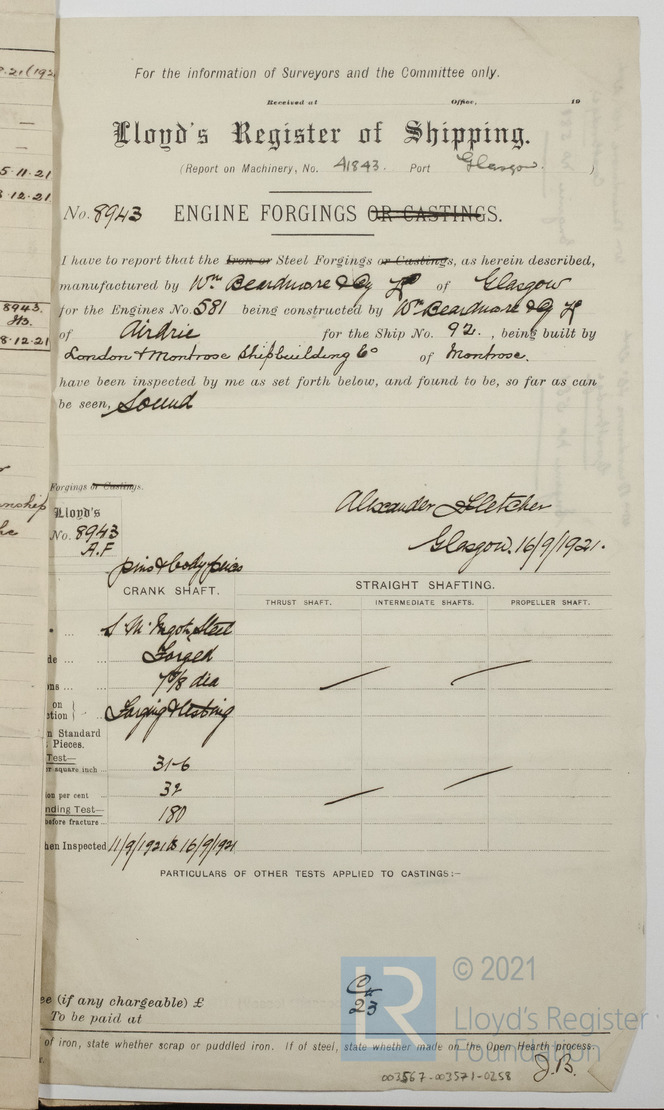 For the information of Surveyors and the Committee only.
Received at Office, 19
Lloyd's Register of Shipping.
(Report on Machinery, No. 41843. Port Glasgow. )
No. 8943 ENGINE FORGINGS OR CASTINGS.
I have to report that the Iron or Steel Forgings or Castings, as herein described,
manufactured by Wm Beardmore & Co Ld of Glasgow
for the Engines No. 581 being constructed by Wm Beardmore & Co Ld
of Airdrie for the Ship No. 92. , being built by
London & Montrose Shipbuilding Co of Montrose.
have been inspected by me as set forth below, and found to be, so far as can
be seen, Sound
Forgings or Castings.
Lloyd's
No. 8943
A.F
Alexander Fletcher
Glasgow. 16/9/1921.
pins & body pieces
CRANK SHAFT. STRAIGHT SHAFTING.
THRUST SHAFT. INTERMEDIATE SHAFTS. PROPELLER SHAFT.
S. M. Ingot Steel
de ... Forged
ons ... 7 5/8 dia
on
ction Forging & testing
n Standard
Pieces.
Test—
er square inch ... 31-6
ion per cent 32
nding Test—
before fracture ... 180
hen Inspected 11/9/1921 to 16/9/1921
PARTICULARS OF OTHER TESTS APPLIED TO CASTINGS:-
ee (if any chargeable) £
To be paid at
23
of iron, state whether scrap or puddled iron. If of steel, state whether made on the Open Hearth process.
J.B.
003567-003571-0258
© 2021
LR
Lloyd's Register
Foundation
5-11-21
8-12-21
8943.
8·12·21